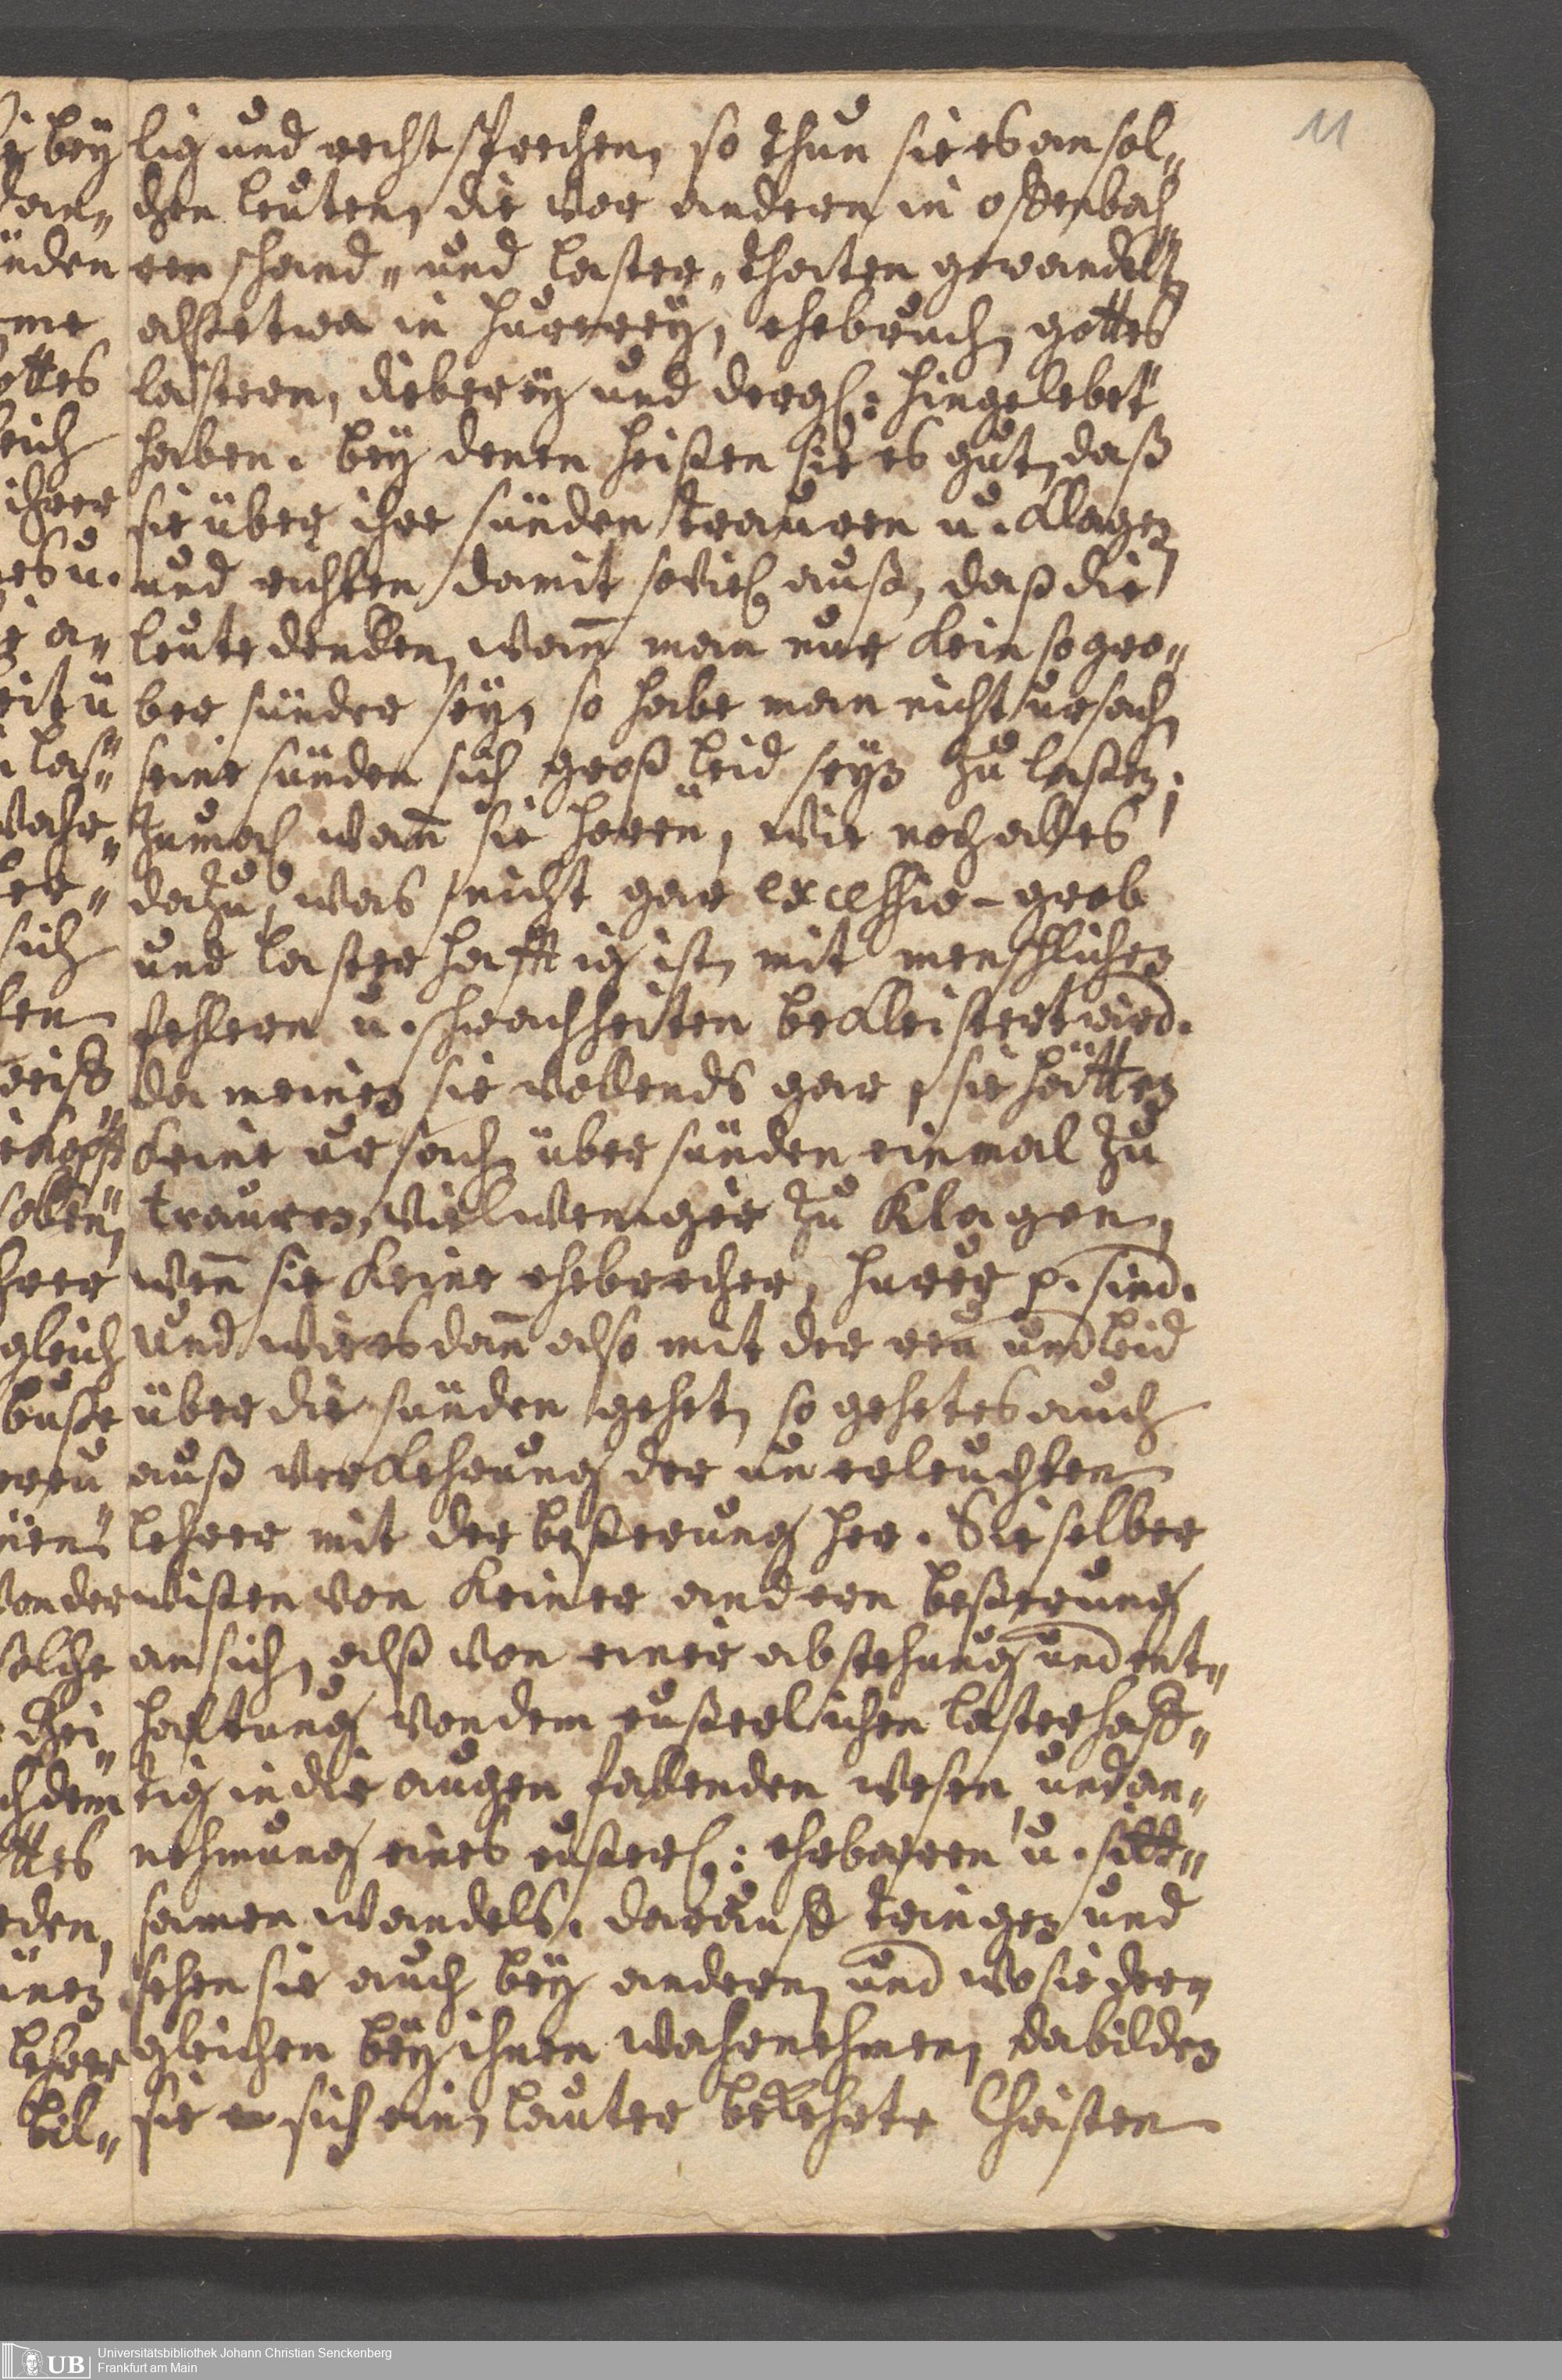 11
lig und recht sprechen, so thun sie es an sol„
chen leuten, die vor andern in offenbah„
ren schand„ und laster„thaten gewandelt,
alß etwa in hurrerey, ehebruch, gottes
lästern, dieberey und dergl: hingelebet
haben. bey denen heißen sie es gut, daß
sie über ihre sünden trauren u. klagen
und richten damit soviel auß, daß die
leute dencken, wañ man nur kein so gro„
ber sünder sey, so habe man nicht ursach,
seine sünden sich groß leid seyn zu laßen;
zumal wañ sie hören, wie noch alles
dazu, was nicht gar excessiv-grob
und lasterhafftig ist, mit menschlichen
fehlern u. schwachheiten bekleistert wird.
da meinen sie vollends gar, sie hätten
keine ursach, über sünden einmal zu
trauren, vielweniger zu klagen,
weñ sie keine ehebrecher, hurer p. sind.
Und wie es dañ also mit der reu und leid
über die sünden gehet, so gehet es auch
auß verkehrung der unerleuchten
lehrer mit der beßerung her. Sie selber
wißen von keiner andern beßerung
an sich, alß von einer abstehung und ent„
haltung von dem eußerlichen lasterhaff„
tig in die augen fallenden wesen, und an„
nehmung eines eußerl: ehrbaren u. sitt„
samen wandels. darauff tringen und
sehen sie auch bey andern, und wo sie der„
gleichen bey ihnen wahrnehmen, da bilden
sie sich ein, lauter bekehrte Christen
UB
Universitätsbibliothek Johann Christian Senckenberg
Frankfurt am Main